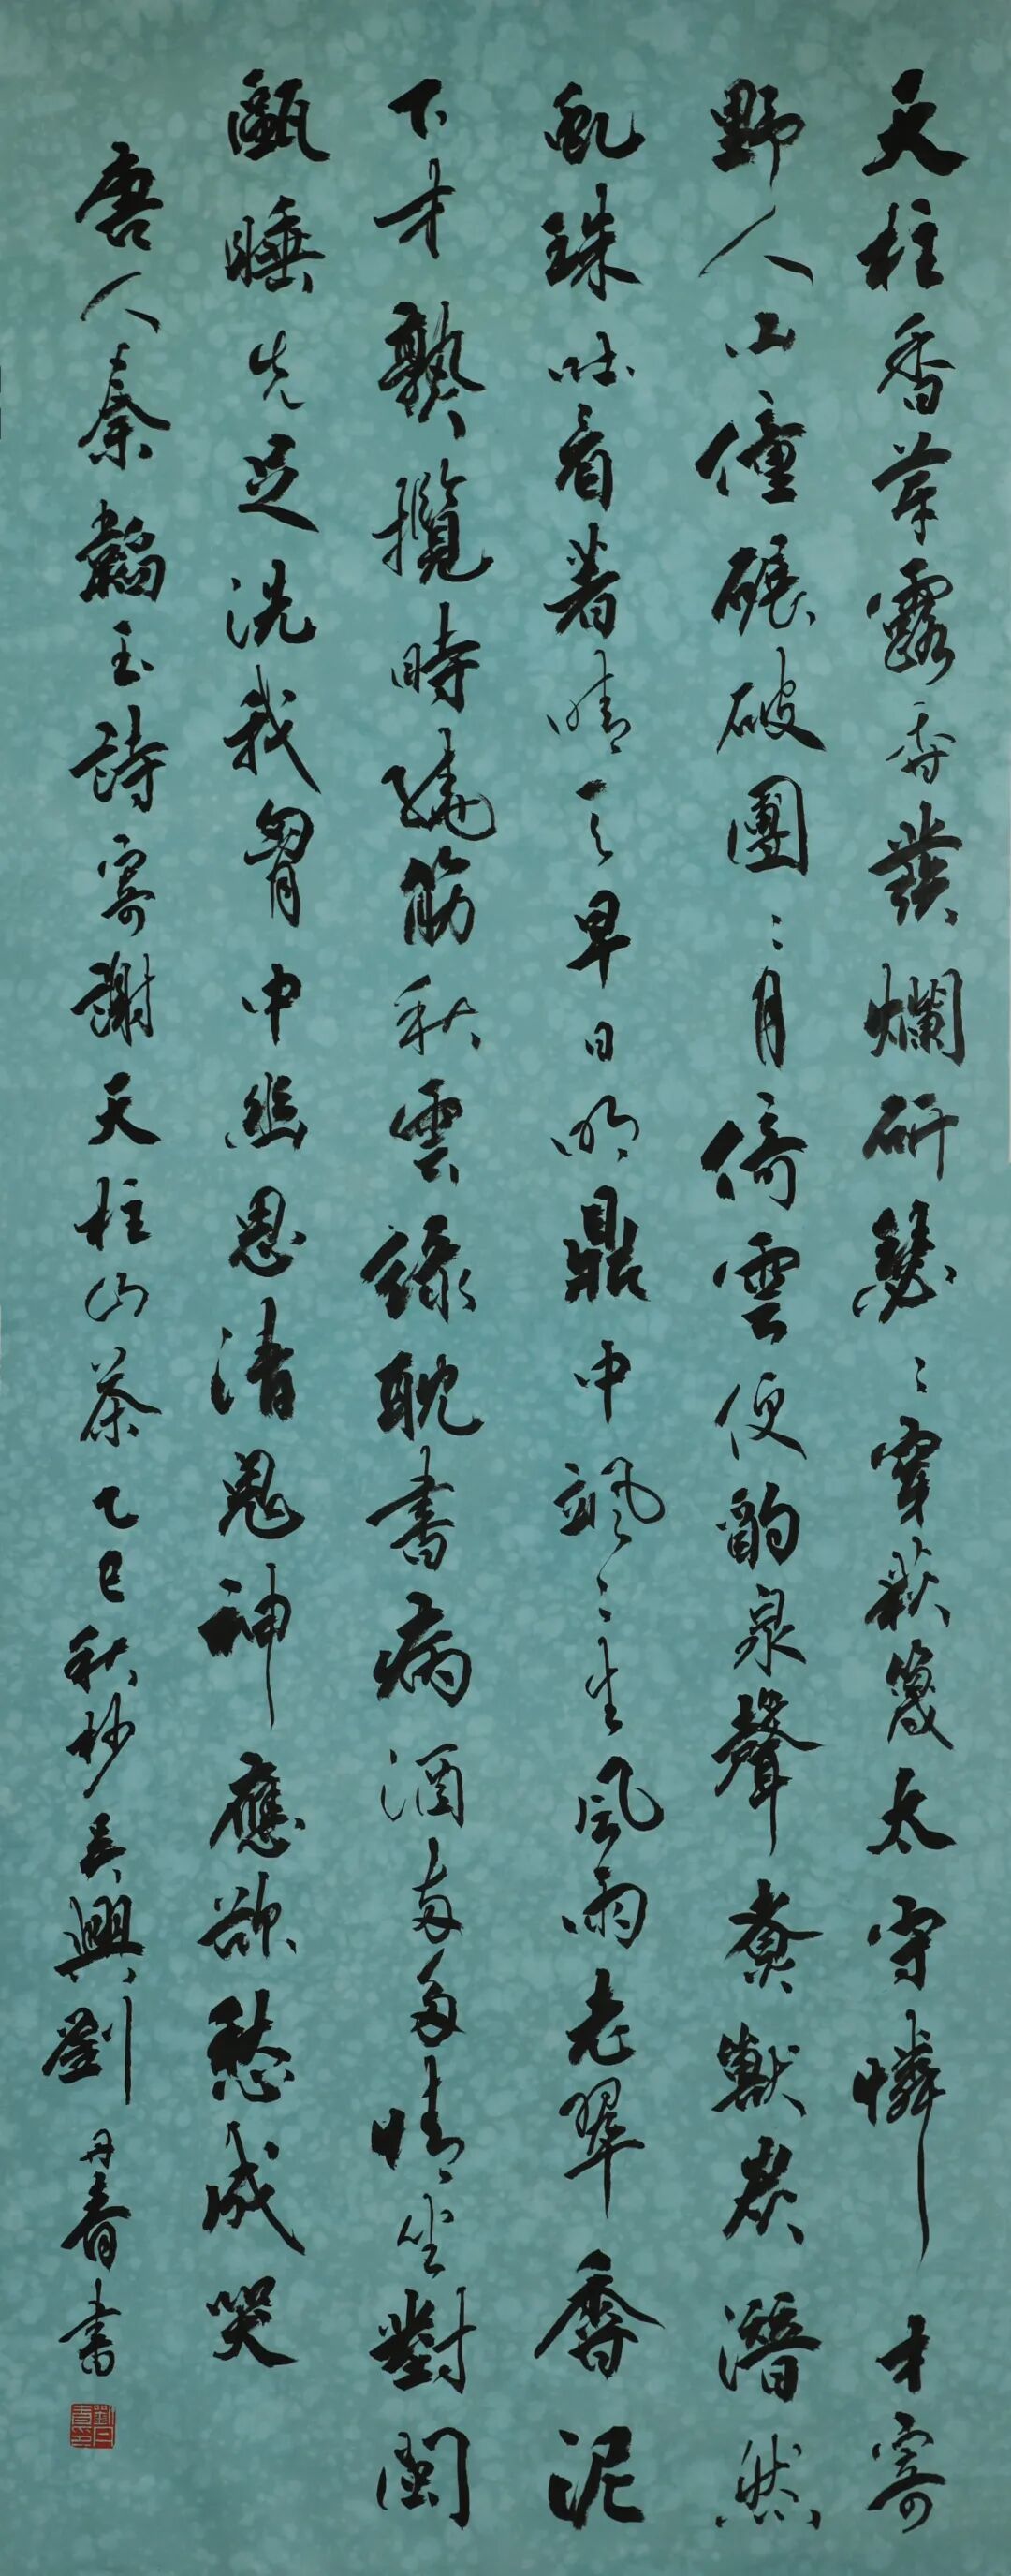 天柱香芽露香發爛研瑟〻穿荻篾太守憐才寄
野人山僮碾破團〻月倚雲便酌泉聲煮獸炭潛然
虬珠吐看著晴天早日明鼎中颯〻生風雨老翠香泥
下才熟攪時繞筋秋雲綠耽書病酒兩多情坐對閩
甌睡先足洗我胷中幽思清鬼神應欲愁成哭
唐人秦韜玉詩寄謝天柱山茶乙巳秋杪吳興劉丹春書